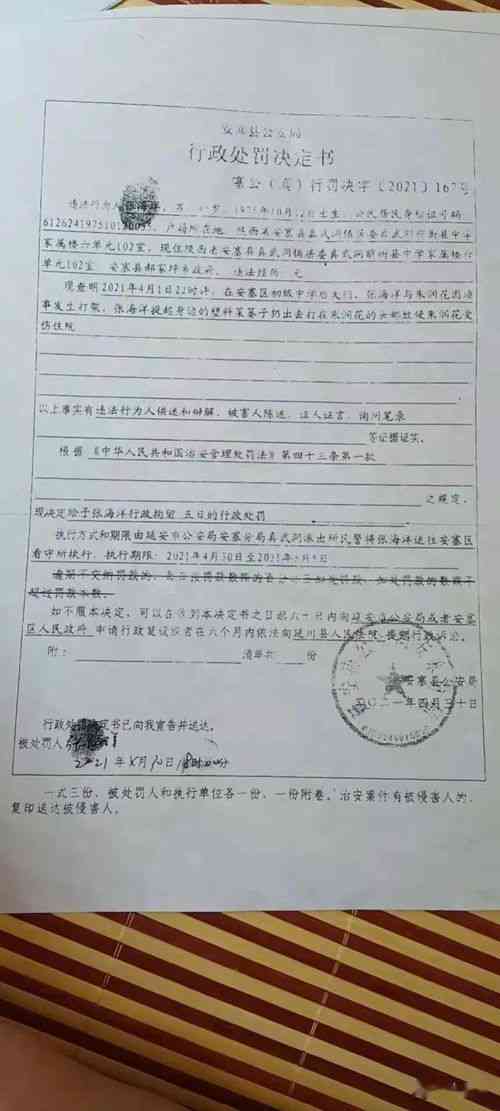 安塞县公安局
行政处罚决定书
塞公（真）行罚决字〔2021〕167号
违法行为人张海洋，男，
1975年10月12日出生，公民身份证号码
61262419751012，户籍所在地
中学
家属楼六单元102室，现住陕西省安塞县真武洞镇
中学家属楼六
单元102室，安塞县郝家坪乡政府，违法经历：无
现查明2021年4月1日22时许，在安塞区初级中学后大门，张海洋与朱润花因琐
事发生打架，张海洋提起身边的塑料菜篓子扔出去打在朱润花的头部致使朱润花受
伤住院
以上事实有违法行为人供述和辩解，被害人陈述，证人证言，询问笔录
等证据证实。
根据《中华人民共和国治安管理处罚法》第四十三条第一款
之规定，
现决定给予张海洋行政拘留 五日的行政处罚
执行方式和期限由延安市公安局安塞分局真武洞派出所民警将张海洋送往安塞区
看守所执行，执行期限：2021年4月30日至2021年5月5日
逾期不交纳罚款的，每日按罚款数额的百分之三加处罚款，加处罚款的数额不
超过罚款本数。
如不服本决定，可以在收到本决定书之日起六十日内向延安市公安局或者安塞
区人民政府 申请行政复议或者在六个月内依法向延川县人民法院 提起行政诉讼。
附： 清单共 份
安塞县公安局
二〇二一年四月三十日
行政处罚决定书已向我宣告并送达。
被处罚人
2021年4月30日18时
一式三份，被处罚人和执行单位各一份，一份附卷。治安案件有被侵害人的，
复印送达被侵害人。